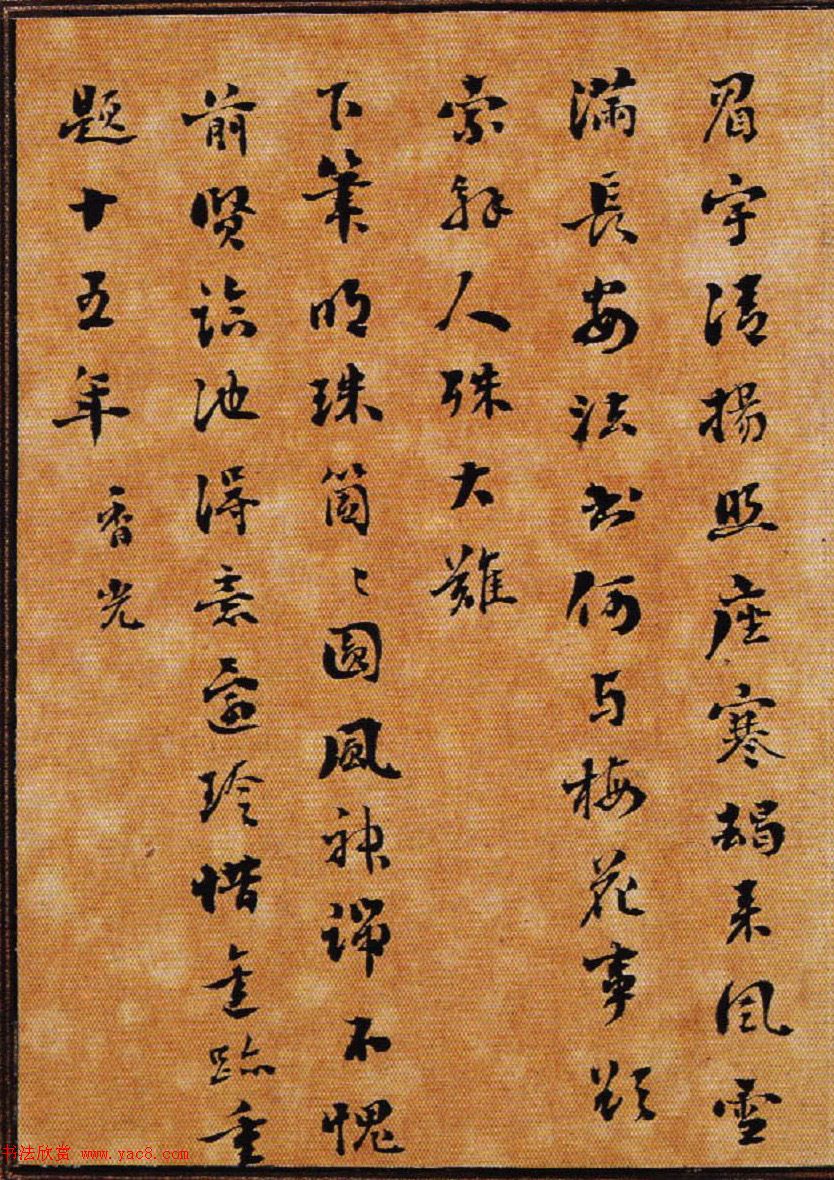 眉宇清揚照座寒朅来風雪
滿長安法书何与梅花事欲
索解人殊大難
下筆明珠箇〻圓風神端不愧
前賢臨池得意還珍惜重
題十五年
香光
书法欣赏 www.yac8.com